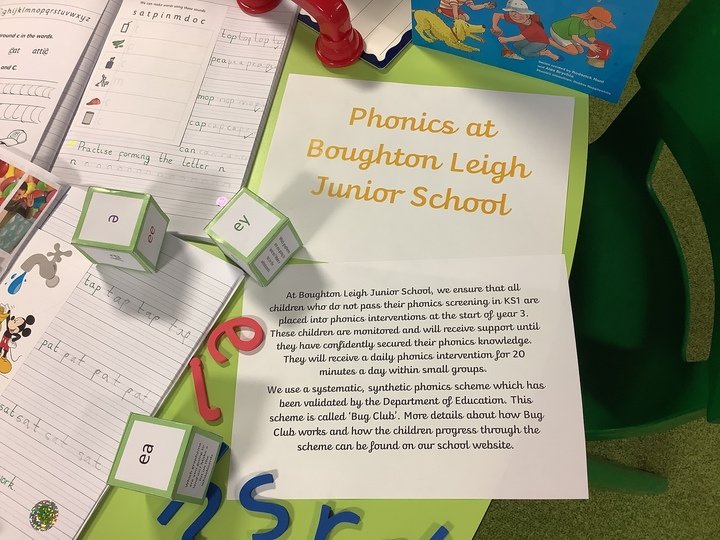 ghijklmnopqrstuvwxyz
We can make words using these sounds.
s a t p i n m d o c
around c in the words.
cat attic
and C.
top top top top
pea
mop mop mop
cap cap cap
can
Practise forming the letter n
n
Phonics at
Boughton Leigh
Junior School
At Boughton Leigh Junior School, we ensure that all
children who do not pass their phonics screening in KS1 are
placed into phonics interventions at the start of year 3.
These children are monitored and will receive support until
they have confidently secured their phonics knowledge.
They will receive a daily phonics intervention for 20
minutes a day within small groups.
We use a systematic, synthetic phonics scheme which has
been validated by the Department of Education. This
scheme is called 'Bug Club'. More details about how Bug
Club works and how the children progress through the
scheme can be found on our school website.
ee
ey
ea
tap tap tap tap
pat pat pat pat pat
sat sat sat sat
e
n
s
r